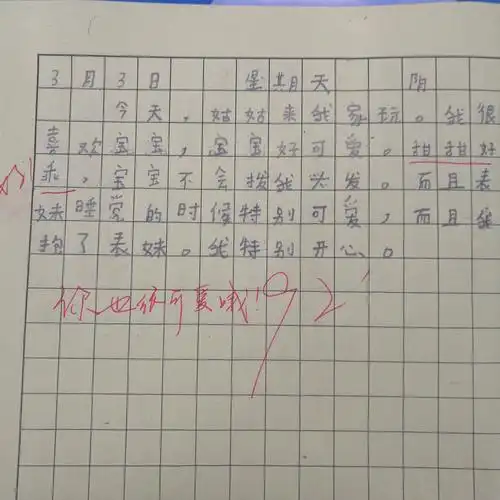 3月3日 星期天 阴
今天,姑姑来我家玩。我很
喜欢宝宝,宝宝好可爱。甜甜好
乖,宝宝不会拨我头发。而且表
妹睡觉的时候特别可爱,而且我
抱了表妹。我特别开心。
你也很可爱哦!92